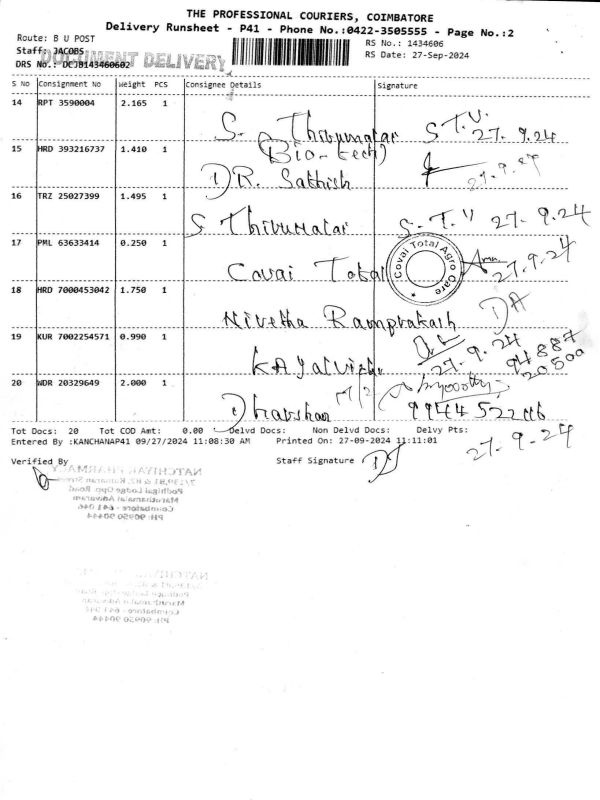 THE PROFESSIONAL COURIERS, COIMBATORE
Delivery Runsheet - P41 - Phone No.:0422-3505555 - Page No.:2
Route: B U POST
RS No.: 1434606
Staff: JACOBS
DOCUMENT DELIVERY
RS Date: 27-Sep-2024
DRS No.: DCJB143460602
S No Consignment No Weight PCS Consignee Details Signature
14 RPT 3590004 2.165 1
S. Thirumalar S T.V. 27.9.24
(Bio-tech)
15 HRD 393216737 1.410 1
DR. Sathish 27.9.24
16 TRZ 25027399 1.495 1
S Thirumalar S.T.V 27.9.24
17 PML 63633414 0.250 1
Covai Total 27.9.24
Covai Total Agro Care
18 HRD 7000453042 1.750 1
Nivetha Ramprakash
19 KUR 7002254571 0.990 1
27.9.24 94887
20500
20 WDR 20329649 2.000 1
Dharshan
Tot Docs: 20 Tot COD Amt: 0.00 Delvd Docs: Non Delvd Docs: Delvy Pts:
Entered By :KANCHANAP41 09/27/2024 11:08:30 AM Printed On: 27-09-2024 11:11:01
27.9.24
Verified By Staff Signature
NATCHIYAR PHARMACY
Podhigai Lodge Opp. Road
Maruthamalai Adivaram
Coimbatore - 641 046
PH: 90950 90444